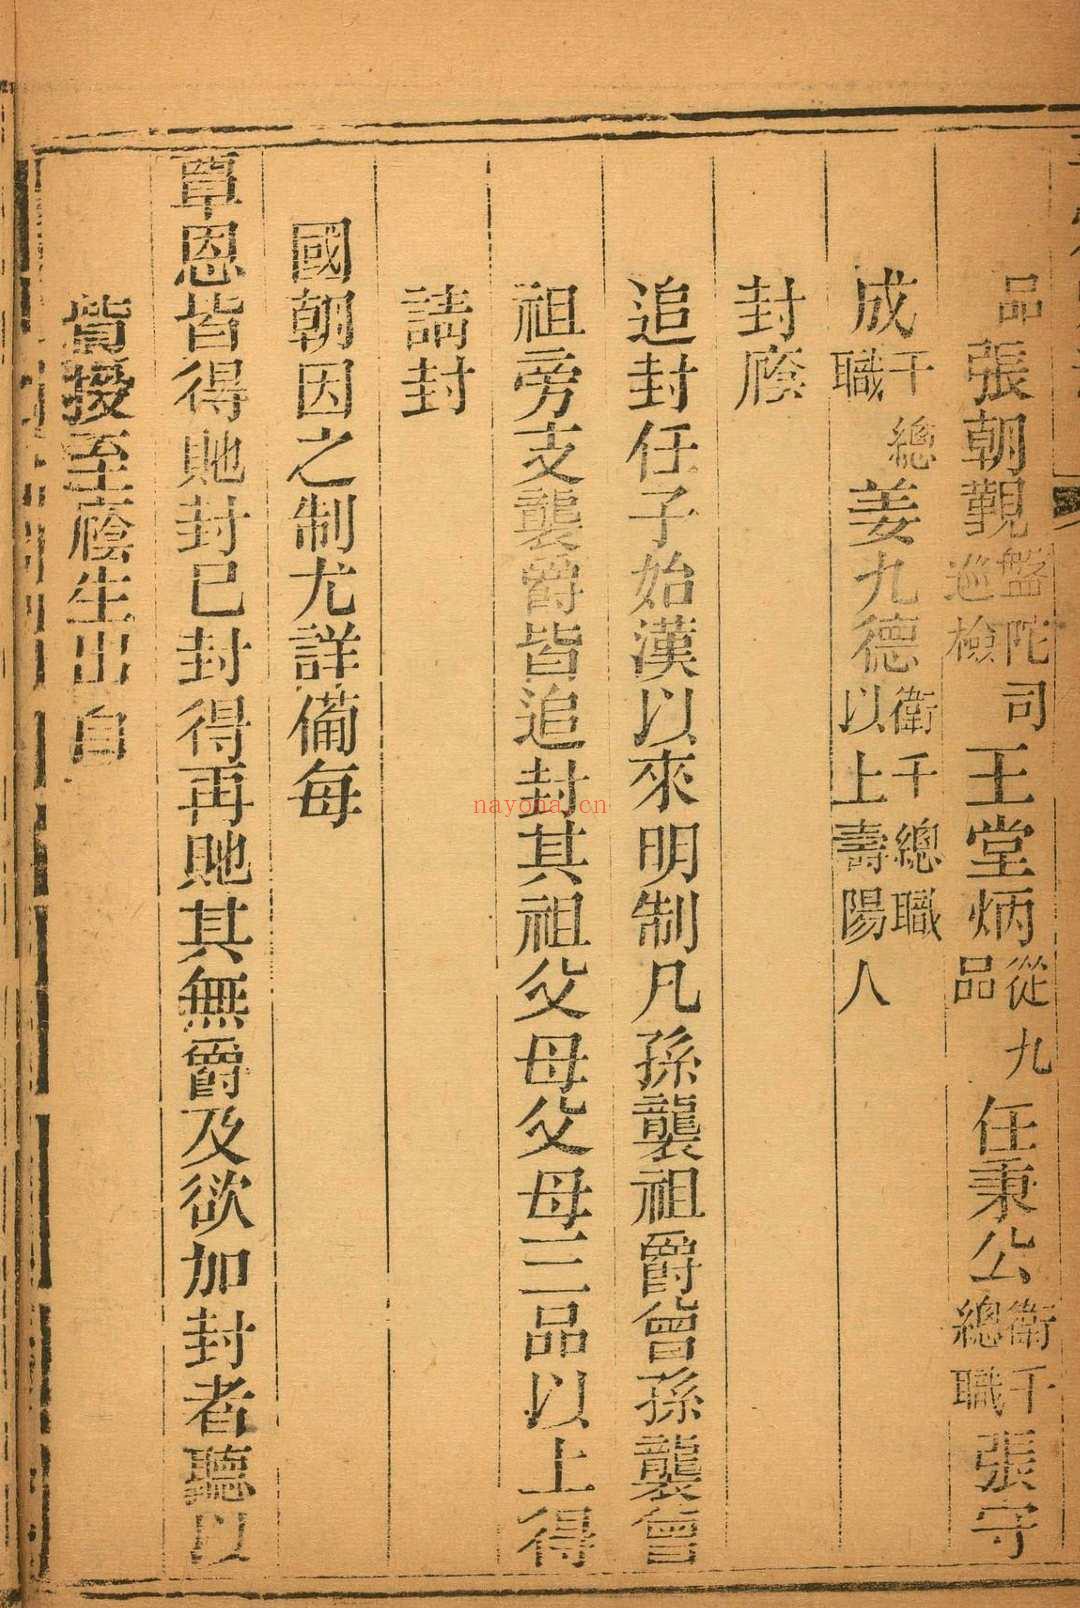 品張朝覲盤陀司巡檢王堂炳從九品任秉公衛千總職張守
成千總職姜九德衛千總職以上壽陽人
封廕
追封任子始漢以來明制凡孫襲祖爵曾孫襲曾
祖旁支襲爵皆追封其祖父母父母三品以上得
請封
國朝因之制尤詳備每
覃恩皆得貤封已封得再貤其無爵及欲加封者聽以
貲授至廕生出自
nayona.cn